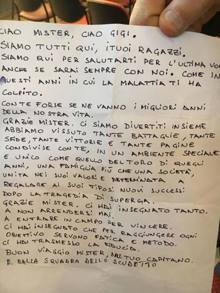 CIAO MISTER, CIAO GIGI.
SIAMO TUTTI QUI, I TUOI RAGAZZI.
SIAMO QUI PER SALUTARTI PER L'ULTIMA VOLTA
ANCHE SE SARAI SEMPRE CON NOI. COME IN
QUESTI ANNI IN CUI LA MALATTIA TI HA
COLPITO.
CON TE FORSE SE NE VANNO I MIGLIORI ANNI
DELLA NOSTRA VITA.
GRAZIE MISTER, CI SIAMO DIVERTITI INSIEME
ABBIAMO VISSUTO TANTE BATTAGLIE, TANTE
SFIDE, TANTE VITTORIE E TANTE PAGINE
CONDIVISE CON TE, IN UN AMBIENTE SPECIALE
E UNICO COME QUELLO DEL TORO DI QUEGLI
ANNI, UNA FAMIGLIA PIÙ CHE UNA SOCIETÀ,
UNITA NEI SUOI VALORI E DETERMINATA A
REGALARE AI SUOI TIFOSI NUOVI SUCCESSI
DOPO LA TRAGEDIA DI SUPERGA.
GRAZIE MISTER, CI HAI INSEGNATO TANTO.
A NON ARRENDERSI MAI,
A ENTRARE IN CAMPO PER VINCERE.
CI HAI INSEGNATO CHE PER RAGGIUNGERE OGNI
OBIETTIVO SERVONO FATICA E METODO.
CI HAI TRASMESSO LA FIDUCIA.
BUON VIAGGIO MISTER, DAL TUO CAPITANO
E DALLA SQUADRA DELLO SCUDETTO